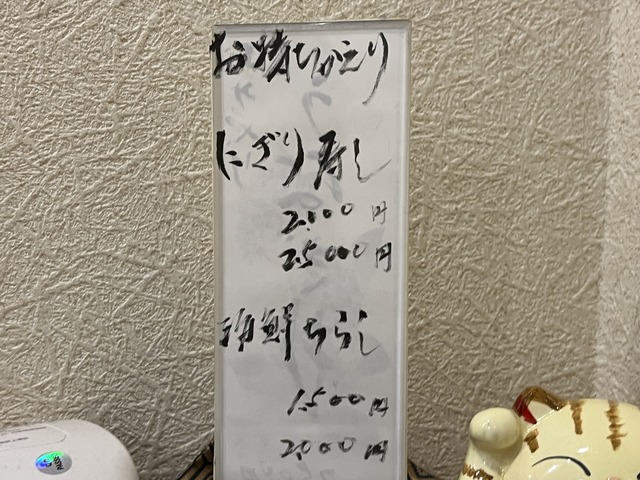 お持ちかえり
にぎり寿し
2.100円
2.5000円
海鮮ちらし
1.500円
2000円